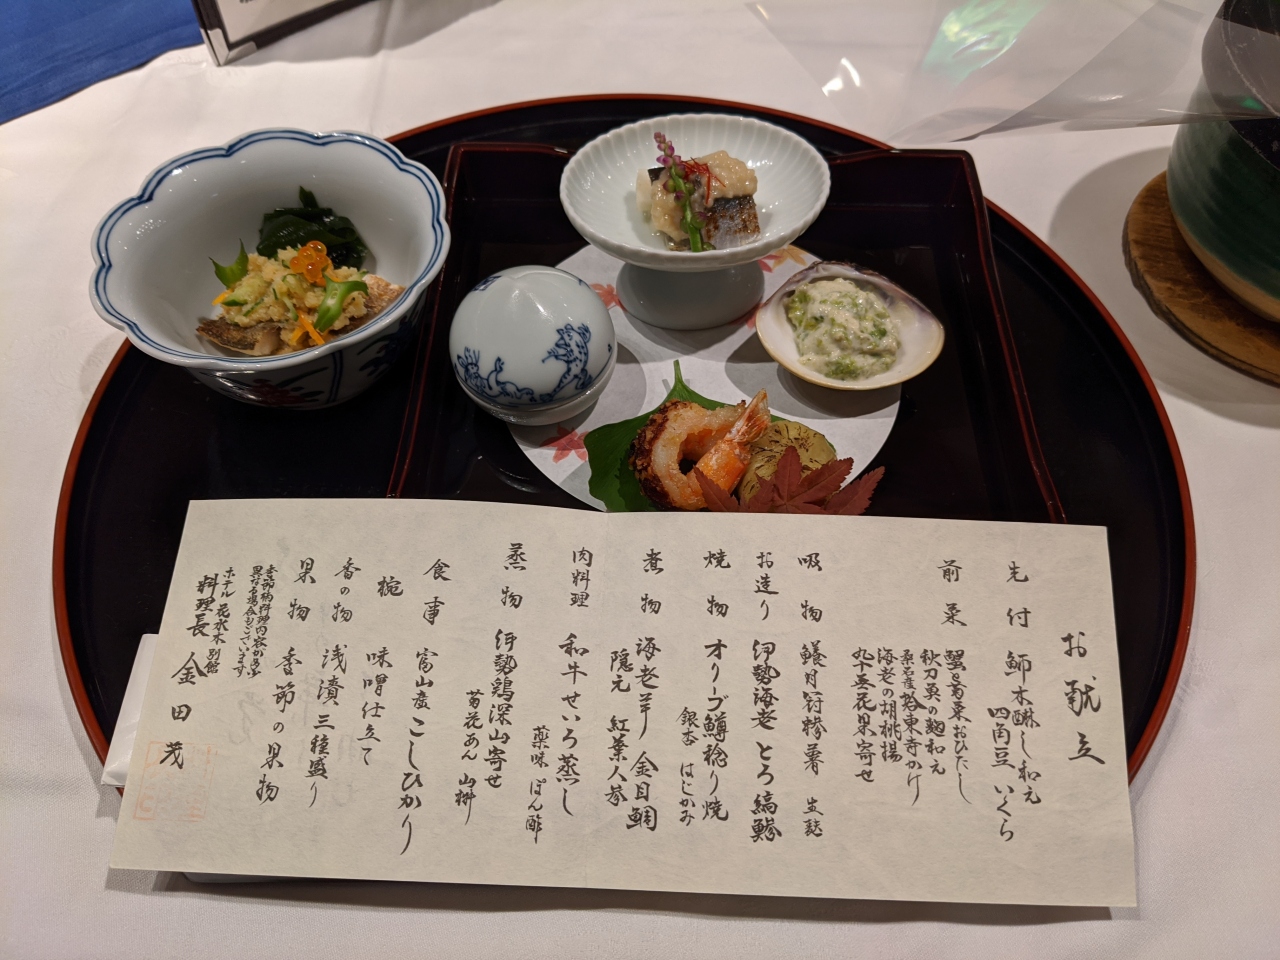 お献立
先付 鰤木醂し和え
四角豆 いくら
前菜 蟹と菊菜おひたし
秋刀魚の麹和え
桑名産蛤東寺かけ
海老の胡桃揚
丸十無花果寄せ
吸物
お造り 伊勢海老 とろ 縞鯵
焼物 オリーブ鱒稔り焼
銀杏 はじかみ
煮物 海老芋 金目鯛
隠元 紅葉人参
肉料理 和牛せいろ蒸し
薬味 ぽん酢
蒸物 伊勢鶏深山寄せ
菊花あん 山椒
食事 富山産こしひかり
椀 味噌仕立て
香の物 浅漬三種盛り
果物 季節の果物
季節柄料理内容が多少
異なる場合もございます
ホテル花水木別館
料理長 金田茂